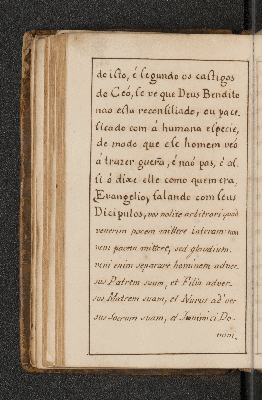 do isto, é segundo os castigos
do Céo, se vé que Deus Bendito
naõ esta reconsiliado, ou pace,
ficado com á humana especie,
de modo que elle homem veó
á trazer guerra, é naõ pas, é al,
si ó dixe elle como quem era,
Evangelio, falando com seus
Dicipulos, nos nolite arbitrari quod
venerim pacem mittere in terram: non
veni pacem mittere, sed gladium.
veni enim separare hominem adver
sus Patrem suum, et Filia adver,
sus Matrem suam, et Nurus adver
sus Socrum suam, et Inimici Do-
mini,